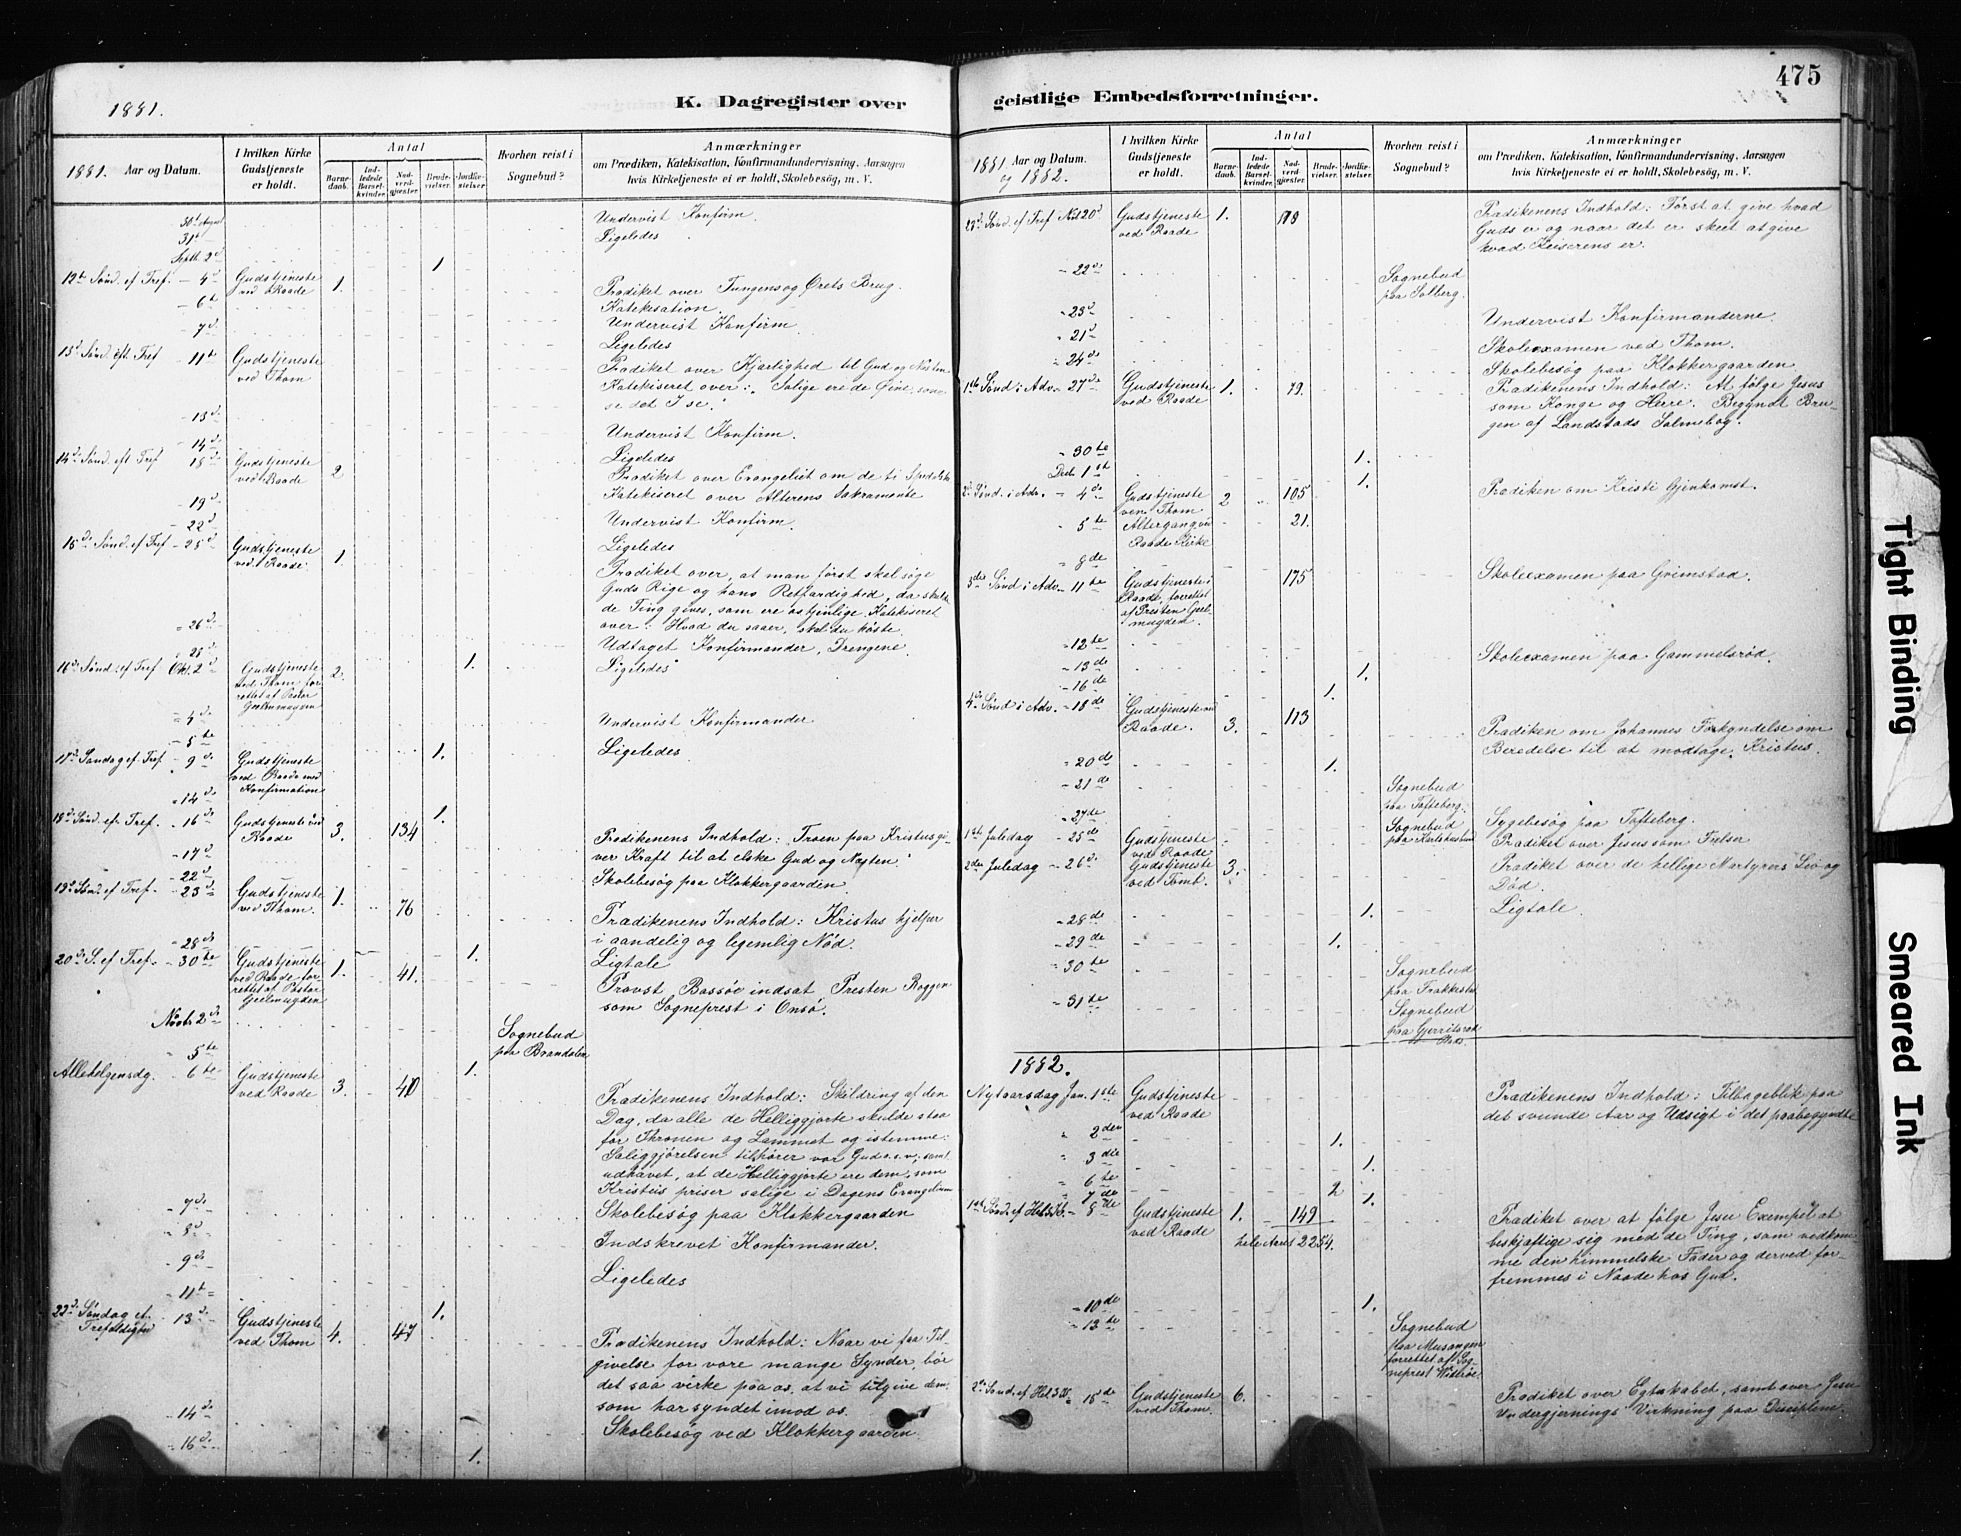 1881.
K. Dagregister over
geistlige Embedsforretninger.
475
1881. Aar og Datum.
I hvilken Kirke Gudstjeneste er holdt.
Antal
Barnedaab.
Indledede Barselkvinder.
Nadverdgjæster.
Brudevielser.
Jordfæstelser.
Hvorhen reist i Sognebud?
Anmærkninger
om Prædiken, Katekisation, Konfirmandundervisning, Aarsagen
hvis Kirketjeneste ei er holdt, Skolebesøg, m. V.
30t August Undervist Konfirm.
31t Ligeledes
Septb. 2d 1
12te Sønd. ef Tref. - 4d Gudstjeneste ved Raade 1. Prædiket over Tungens og Ørets Brug.
Katekisation.
- 6t Undervist Konfirm.
- 7d Ligeledes
13d Sønd. eft Tref - 11t Gudstjeneste ved Thom Prædiket over Kjærlighed til Gud og Næsten
Katekiseret over: "Salige ere de Øine, som
se det I se."
- 13d Undervist Konfirm.
- 14d Ligeledes
14de Sønd. eft Tref 18d Gudstjeneste ved Raade 2 Prædiket over Evangeliet om de ti Spedalske
Katekiseret over Alterens Sakramente
- 19d Undervist Konfirm.
- 22d Ligeledes
15de Sønd. ef Tref - 25d Gudstjeneste ved Raade. 1. Prædiket over, at man først skal søge
Guds Rige og hans Retfærdighed, da skulle
de Ting gives, som ere os tjenlige. Katekiseret
over: Hvad du saaer, skal du høste.
- 26d Udtaget Konfirmander, Drengene.
- 28d 1. Ligeledes
16d Sønd. ef Tref Okt. 2d Gudstjeneste ved Thom forrettet af Pastor Geelmuyden 2.
- 4d Undervist Konfirmander
- 5te 1. Ligeledes.
17d Søndag ef. Tref - 9d Gudstjeneste ved Raade med Konfirmation
- 14d 1.
18d Sønd. ef. Tref. - 16d Gudstjeneste ved Raade 3. 134 Prædikenens Indhold: Troen paa Kristus gi-
ver Kraft til at elske Gud og Næsten
- 17d Skolebesøg paa Klokkergaarden.
- 22d
19d Sønd ef Tref. - 23d Gudstjeneste ved Thom. 1. 76 Prædikenens Indhold: Kristus hjelper
i aandelig og legemlig Nød.
- 28de 1. Ligtale
20d S. ef Tref. - 30te Gudstjeneste ved Raade forrettet af Pastor Geelmuyden 1. 41. Provst Bassøe indsat Presten Roggen
som Sogneprest i Onsø.
Novbr. 2d Sognebud paa Brandsten
- 5te 1.
Allehelgensdg. - 6te Gudstjeneste ved Raade 3. 40 Prædikenens Indhold: Skildring af den
Dag, da alle de Helliggjorte skulde staa
for Thronen og Lammet og istemme:
Saliggjørelsen tilhører vor Gud o.s.v; samt
udhævet, at de Helliggjorte ere dem, som
Kristus priser salige i Dagens Evangelium
- 7d Skolebesøg paa Klokkergaarden
- 8d Indskrevet Konfirmander.
- 9d Ligeledes
- 11t 1.
22d Søndag ef. Trefoldighed - 13d Gudstjeneste ved Thom 4. 47 Prædikenens Indhold: Naar vi faa Til
givelse for vore mange Synder, bør
det saa virke paa os, at vi tilgive dem
som har syndet imod os.
- 14d Skolebesøg ved Klokkergaarden
- 16d 1.
1881 og 1882. Aar og Datum.
I hvilken Kirke Gudstjeneste er holdt.
Antal
Barnedaab.
Indledede Barselkvinder.
Nadverdgjæster.
Brudevielser.
Jordfæstelser.
Hvorhen reist i Sognebud?
Anmærkninger
om Prædiken, Katekisation, Konfirmandundervisning, Aarsagen
hvis Kirketjeneste ei er holdt, Skolebesøg, m. V.
23d Sønd. ef Tref Nov 20d Gudstjeneste ved Raade 1. Prædikenens Indhold: Først at give hvad
Guds er og naar det er skeet at give
hvad Keiserens er.
- 22de Sognebud paa Solberg.
- 23d Undervist Konfirmanderne.
- 21d Skoleexamen ved Thom.
- 24de Skolebesøg paa Klokkergaarden
1ste Sønd i Adv. 27de Gudstjeneste ved Raade 1. 79. Prædikenens Indhold: At følge Jesus
som Konge og Herre. Begyndt Bru-
gen af Landstads Salmebog.
- 30te 1.
Decb. 1st 1.
2d Sønd. i Adv. - 4de Gudstjeneste ved Thom 2 105 Prædiken om Kristi Gjenkomst.
- 5te Altergang ved Raade Kirke 21.
- 8de Skoleexamen paa Grimstad.
3die Sønd i Adv. 11te Gudstjeneste i Raade, forrettet af Presten Geelmuyden. 175
- 12te Skoleexamen paa Gammelsrød.
- 13de 1.
- 16de 1.
4d Sønd i Adv. - 18de Gudstjeneste ved Raade. 3. 113 Prædiken om Johannes Forkyndelse om
Beredelse til at modtage Kristus.
- 20de 1.
- 21de Sognebud paa Tofteberg.
- 24de Sognebud paa Sygebesøg paa Tofteberg.
1ste Juledag - 25de Gudstjeneste ved Raade Prædiket over Jesus som Frelser
2den Juledag - 26d Gudstjeneste ved Tomb. 3. Prædiket over de hellige Martyrens Liv og
Død.
- 28de 1. Ligtale
- 29de 1.
- 30te Sognebud paa
- 31te Sognebud paa
1882.
Nytaarsdag Jan. 1ste Gudstjeneste ved Raade Prædikenens Indhold: Tilbageblik paa
det svunde Aar og Udsigt i det paabegyndte
" 2den 1.
" 3die 1.
" 6te 2
" 7de 1.
1ste Sønd. ef Hel.3.K. - 8de Gudstjeneste ved Raade 1. 149 Prædiket over at følge Jesu Exempel at
hele Aaret 2254. beskjæftige sig med de Ting, som vedkom-
me den himmelske Fader og derved for-
fremmes i Naade hos Gud.
- 10de 1.
- 13te Sognebud paa forrettet af Sogneprest
2den Sønd. ef Hel 3 K - 15de Gudstjeneste ved Thom. 6. Prædiket over Egteskabet, samt over Jesu
Undergjernings Virkning paa Disciplene
Tight Binding
Smeared Ink